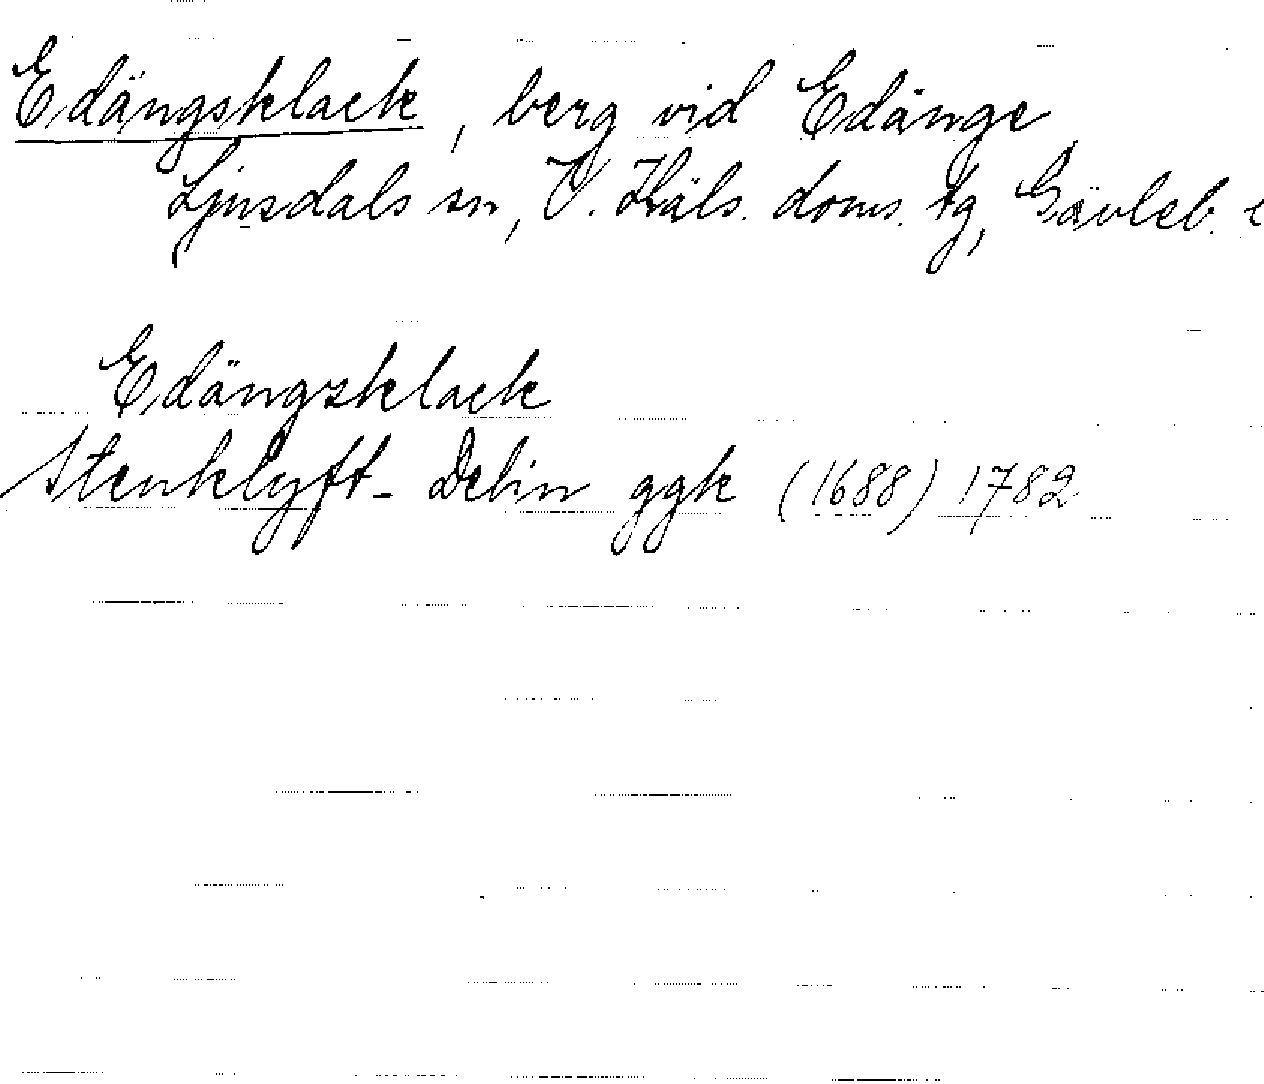 Edängsklack, berg vid Edänge
Ljusdals sn, V. Häls. doms. tg, Gävleb.
Edängsklack
Stenklyft - Delin ggk (1688) 1782